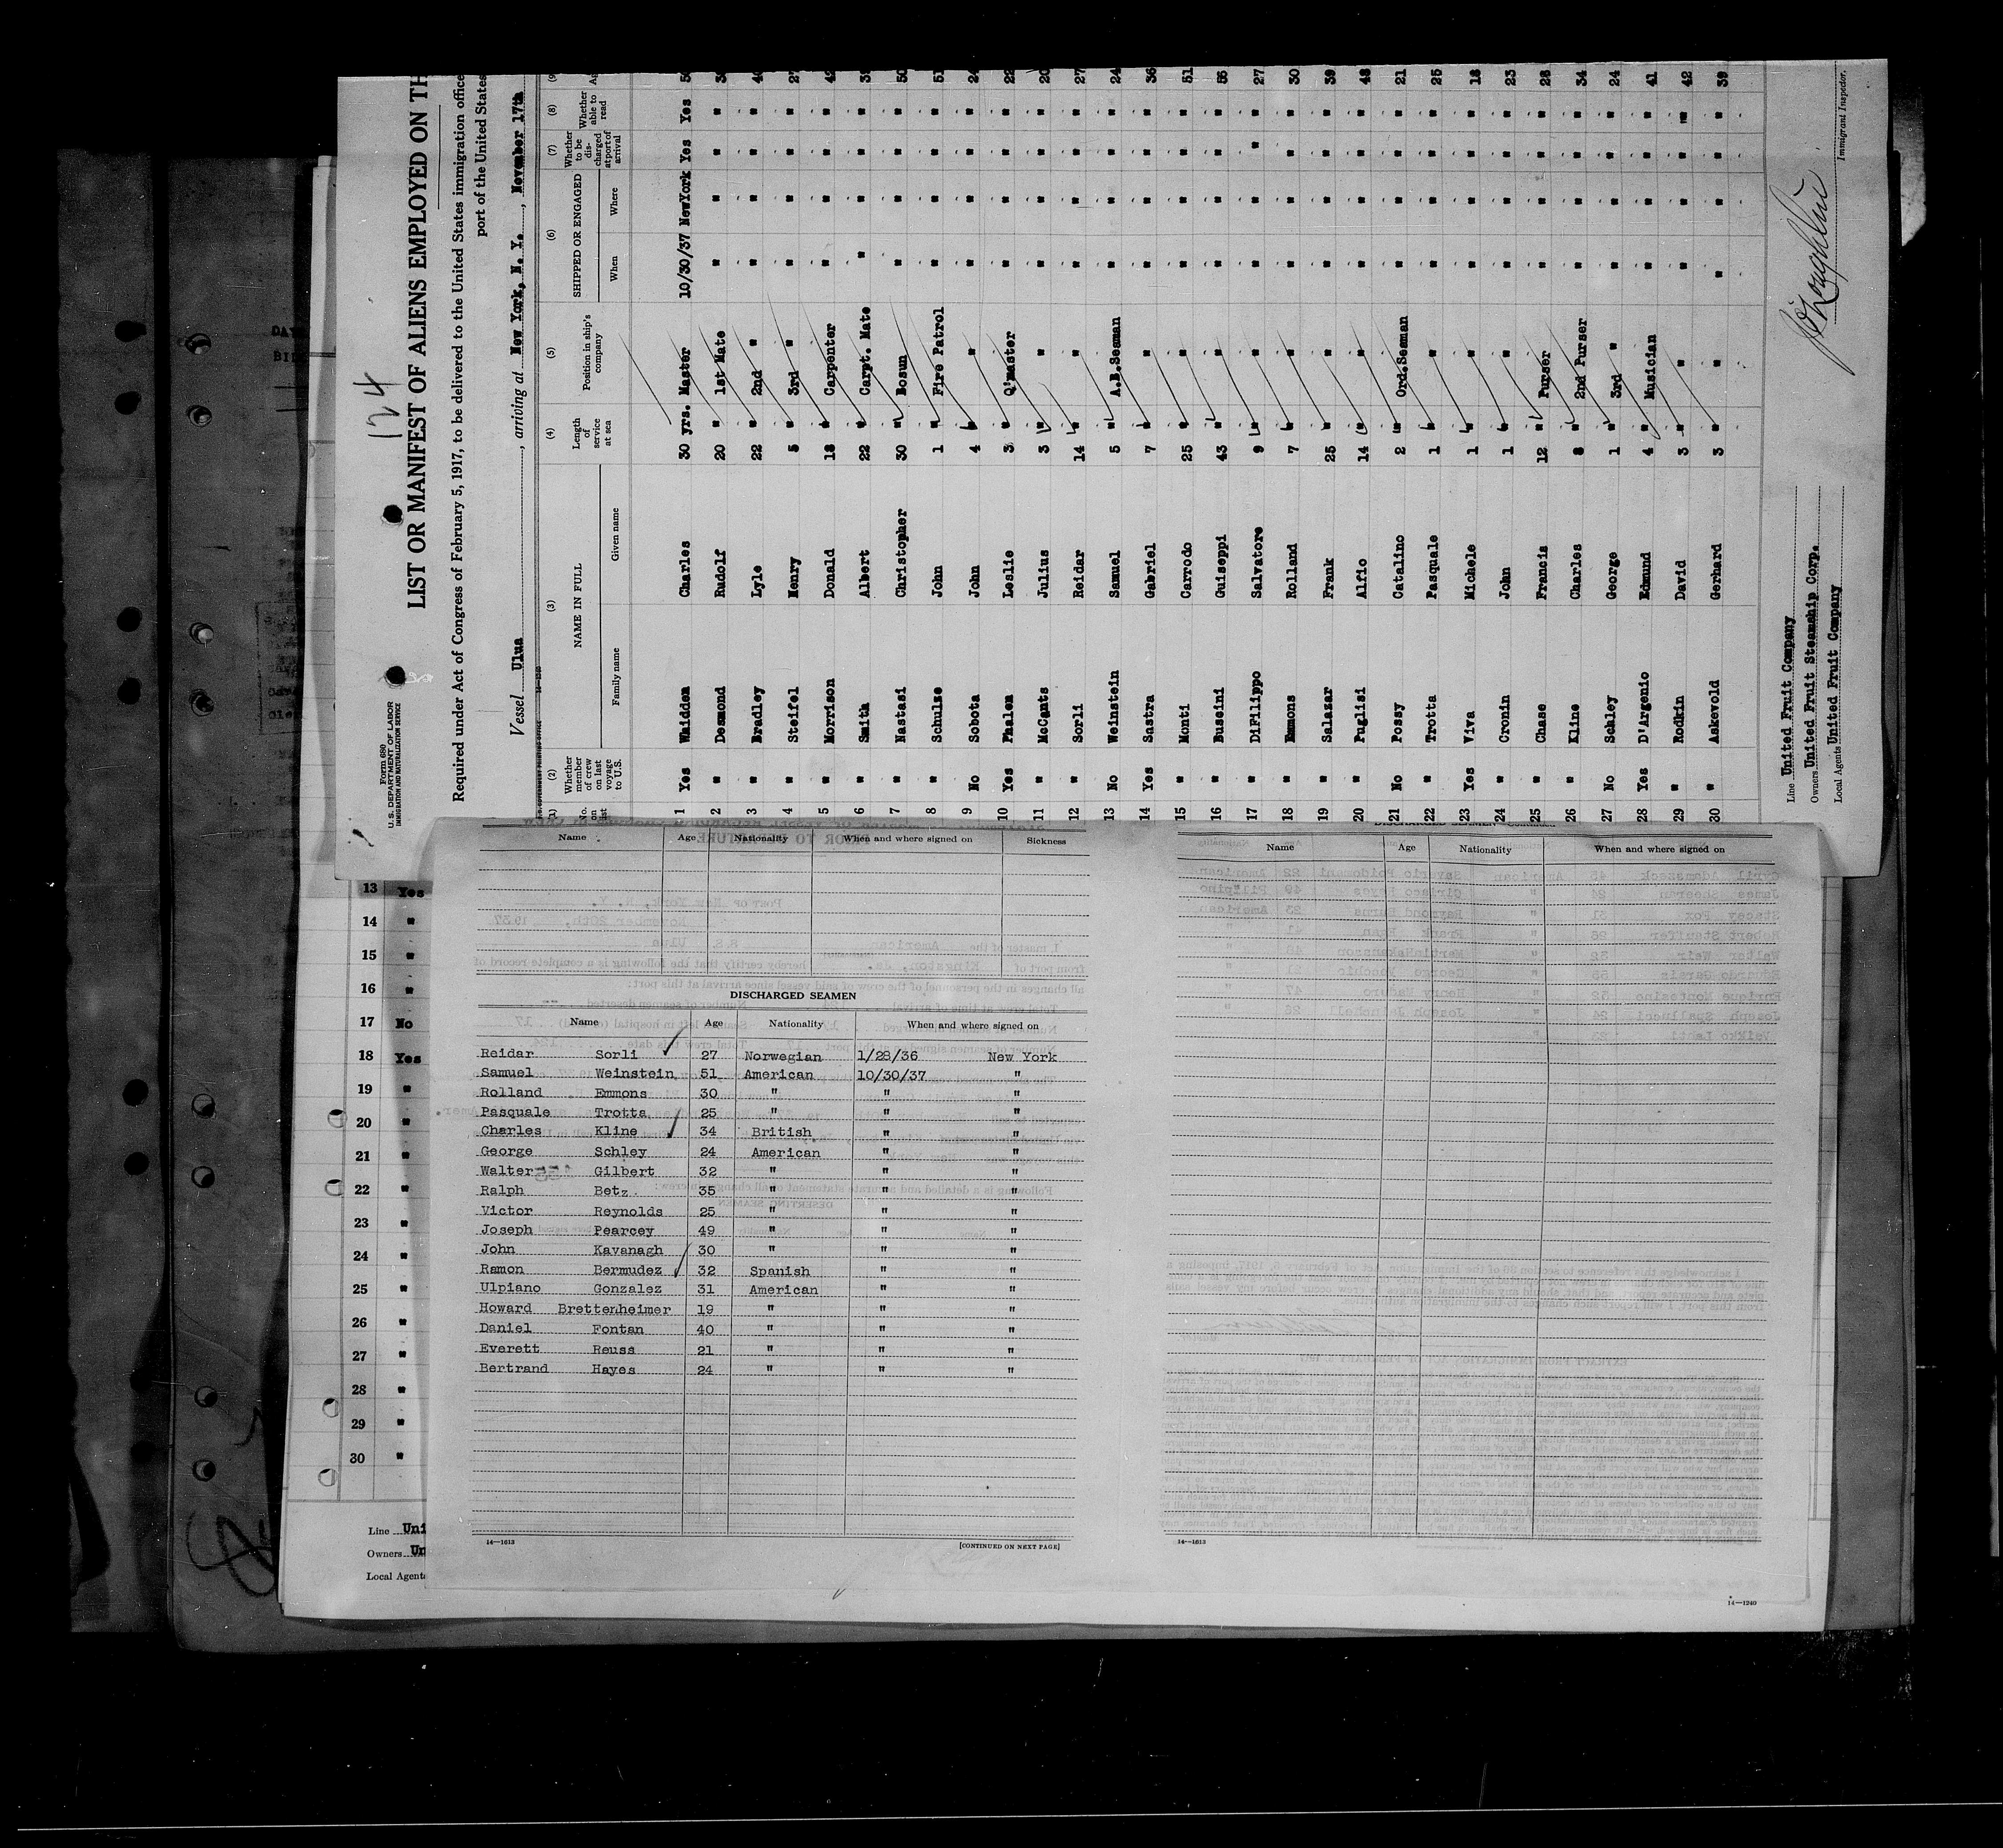 124
Form 680
U. S. DEPARTMENT OF LABOR
IMMIGRATION AND NATURALIZATION SERVICE
LIST OR MANIFEST OF ALIENS EMPLOYED ON TH
Required under Act of Congress of February 5, 1917, to be delivered to the United States immigration office
port of the United States
Vessel Ulua, arriving at New York, N. Y., November 17th
(1) (2) (3) (4) (5) (6) (7) (8) (9
No. on list Whether member of crew on last voyage to U.S. NAME IN FULL Family name Given name Length of service at sea Position in ship's company SHIPPED OR ENGAGED When Where Whether to be discharged at port of arrival Whether able to read Ag
1 Yes Whidden Charles 30 yrs. Master 10/30/37 NewYork Yes Yes
2 " Desmond Rudolf 20 " 1st Mate " " " "
3 " Bradley Lyle 22 " 2nd " " " " "
4 " Steifel Henry 5 " 3rd " " " " " 27
5 " Morrison Donald 18 " Carpenter " " " "
6 " Smith Albert 22 " Carpt. Mate " " " "
7 " Nastasi Christopher 30 " Bosun " " " " 50
8 " Schulse John 1 " Fire Patrol " " " " 51
9 No Sobota John 4 " " " " " " 24
10 Yes Phalen Leslie 3 " Q'master " " " " 22
11 " McCants Julius 3 " " " " " " 20
12 " Sorli Reidar 14 " " " " " " 27
13 No Weinstein Samuel 5 " A.B.Seaman " " " " 24
14 Yes Sastra Gabriel 7 " " " " " " 36
15 " Monti Carrodo 25 " " " " " " 51
16 " Buseini Guiseppi 43 " " " " " " 55
17 " DiFilippo Salvatore 9 " " " " " " 27
18 " Emmons Rolland 7 " " " " " " 30
19 " Salazar Frank 25 " " " " " " 39
20 " Puglisi Alfio 14 " " " " " " 48
21 No Possy Catalino 2 " Ord.Seaman " " " " 21
22 " Trotta Pasquale 1 " " " " " " 25
23 Yes Viva Michele 1 " " " " " " 18
24 " Cronin John 1 " " " " " " 23
25 " Chase Francis 12 " Purser " " " " 28
26 " Kline Charles 8 " 2nd Purser " " " " 34
27 No Schley George 1 " 3rd " " " " " 24
28 Yes D'Argenio Edmund 4 " Musician " " " " 41
29 " Rodkin David 3 " " " " " " 42
30 " Askevold Gerhard 3 " " " " " " 39
Line United Fruit Company
Owners United Fruit Steamship Corp.
Local Agents United Fruit Company
Immigrant Inspector.
Name Age Nationality When and where signed on Sickness
DISCHARGED SEAMEN
Name Age Nationality When and where signed on
Reidar Sorli 27 Norwegian 1/28/36 New York
Samuel Weinstein 51 American 10/30/37 "
Rolland Emmons 30 " " "
Pasquale Trotta 25 " " "
Charles Kline 34 British " "
George Schley 24 American " "
Walter Gilbert 32 " " "
Ralph Betz 35 " " "
Victor Reynolds 25 " " "
Joseph Pearcey 49 " " "
John Kavanagh 30 " " "
Ramon Bermudez 32 Spanish " "
Ulpiano Gonzalez 31 American " "
Howard Brettenheimer 19 " " "
Daniel Fontan 40 " " "
Everett Reuss 21 " " "
Bertrand Hayes 24 " " "
14—1613
[CONTINUED ON NEXT PAGE]
Name Age Nationality When and where signed on
14—1613
13 Yes
14 "
15 "
16 "
17 No
18 Yes
19 "
20 "
21 "
22 "
23 "
24 "
25 "
26 "
27 "
28 "
29 "
30 "
Line Uni
Owners Un
Local Agent
14—1240